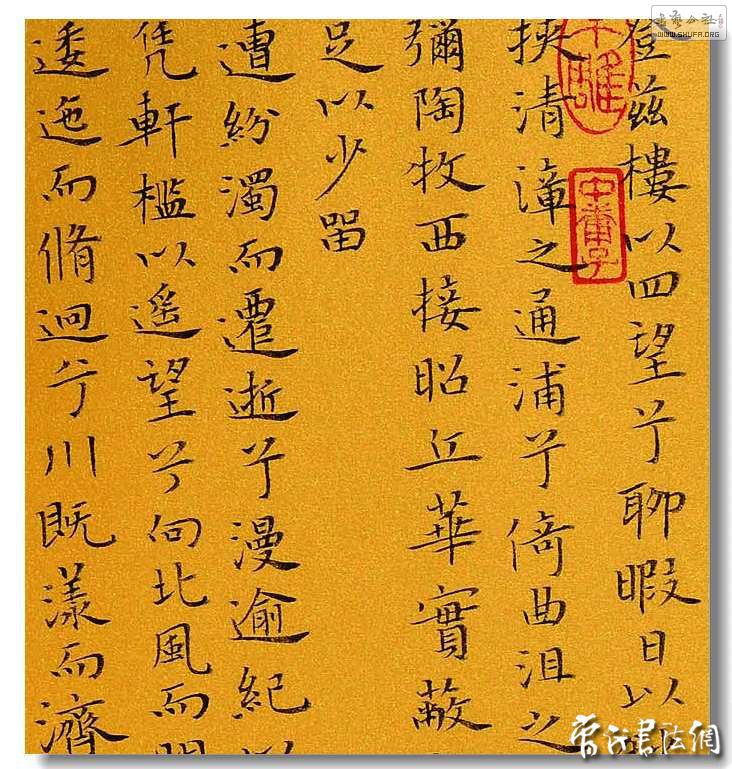 登茲樓以四望兮聊暇日以
挾清漳之通浦兮倚曲沮之
彌陶牧西接昭丘華實蔽
足以少留
遭紛濁而遷逝兮漫逾紀以
凭軒檻以遙望兮向北風而開
逶迤而脩迥兮川既漾而濟
WWW.SHUFA.ORG
書法網